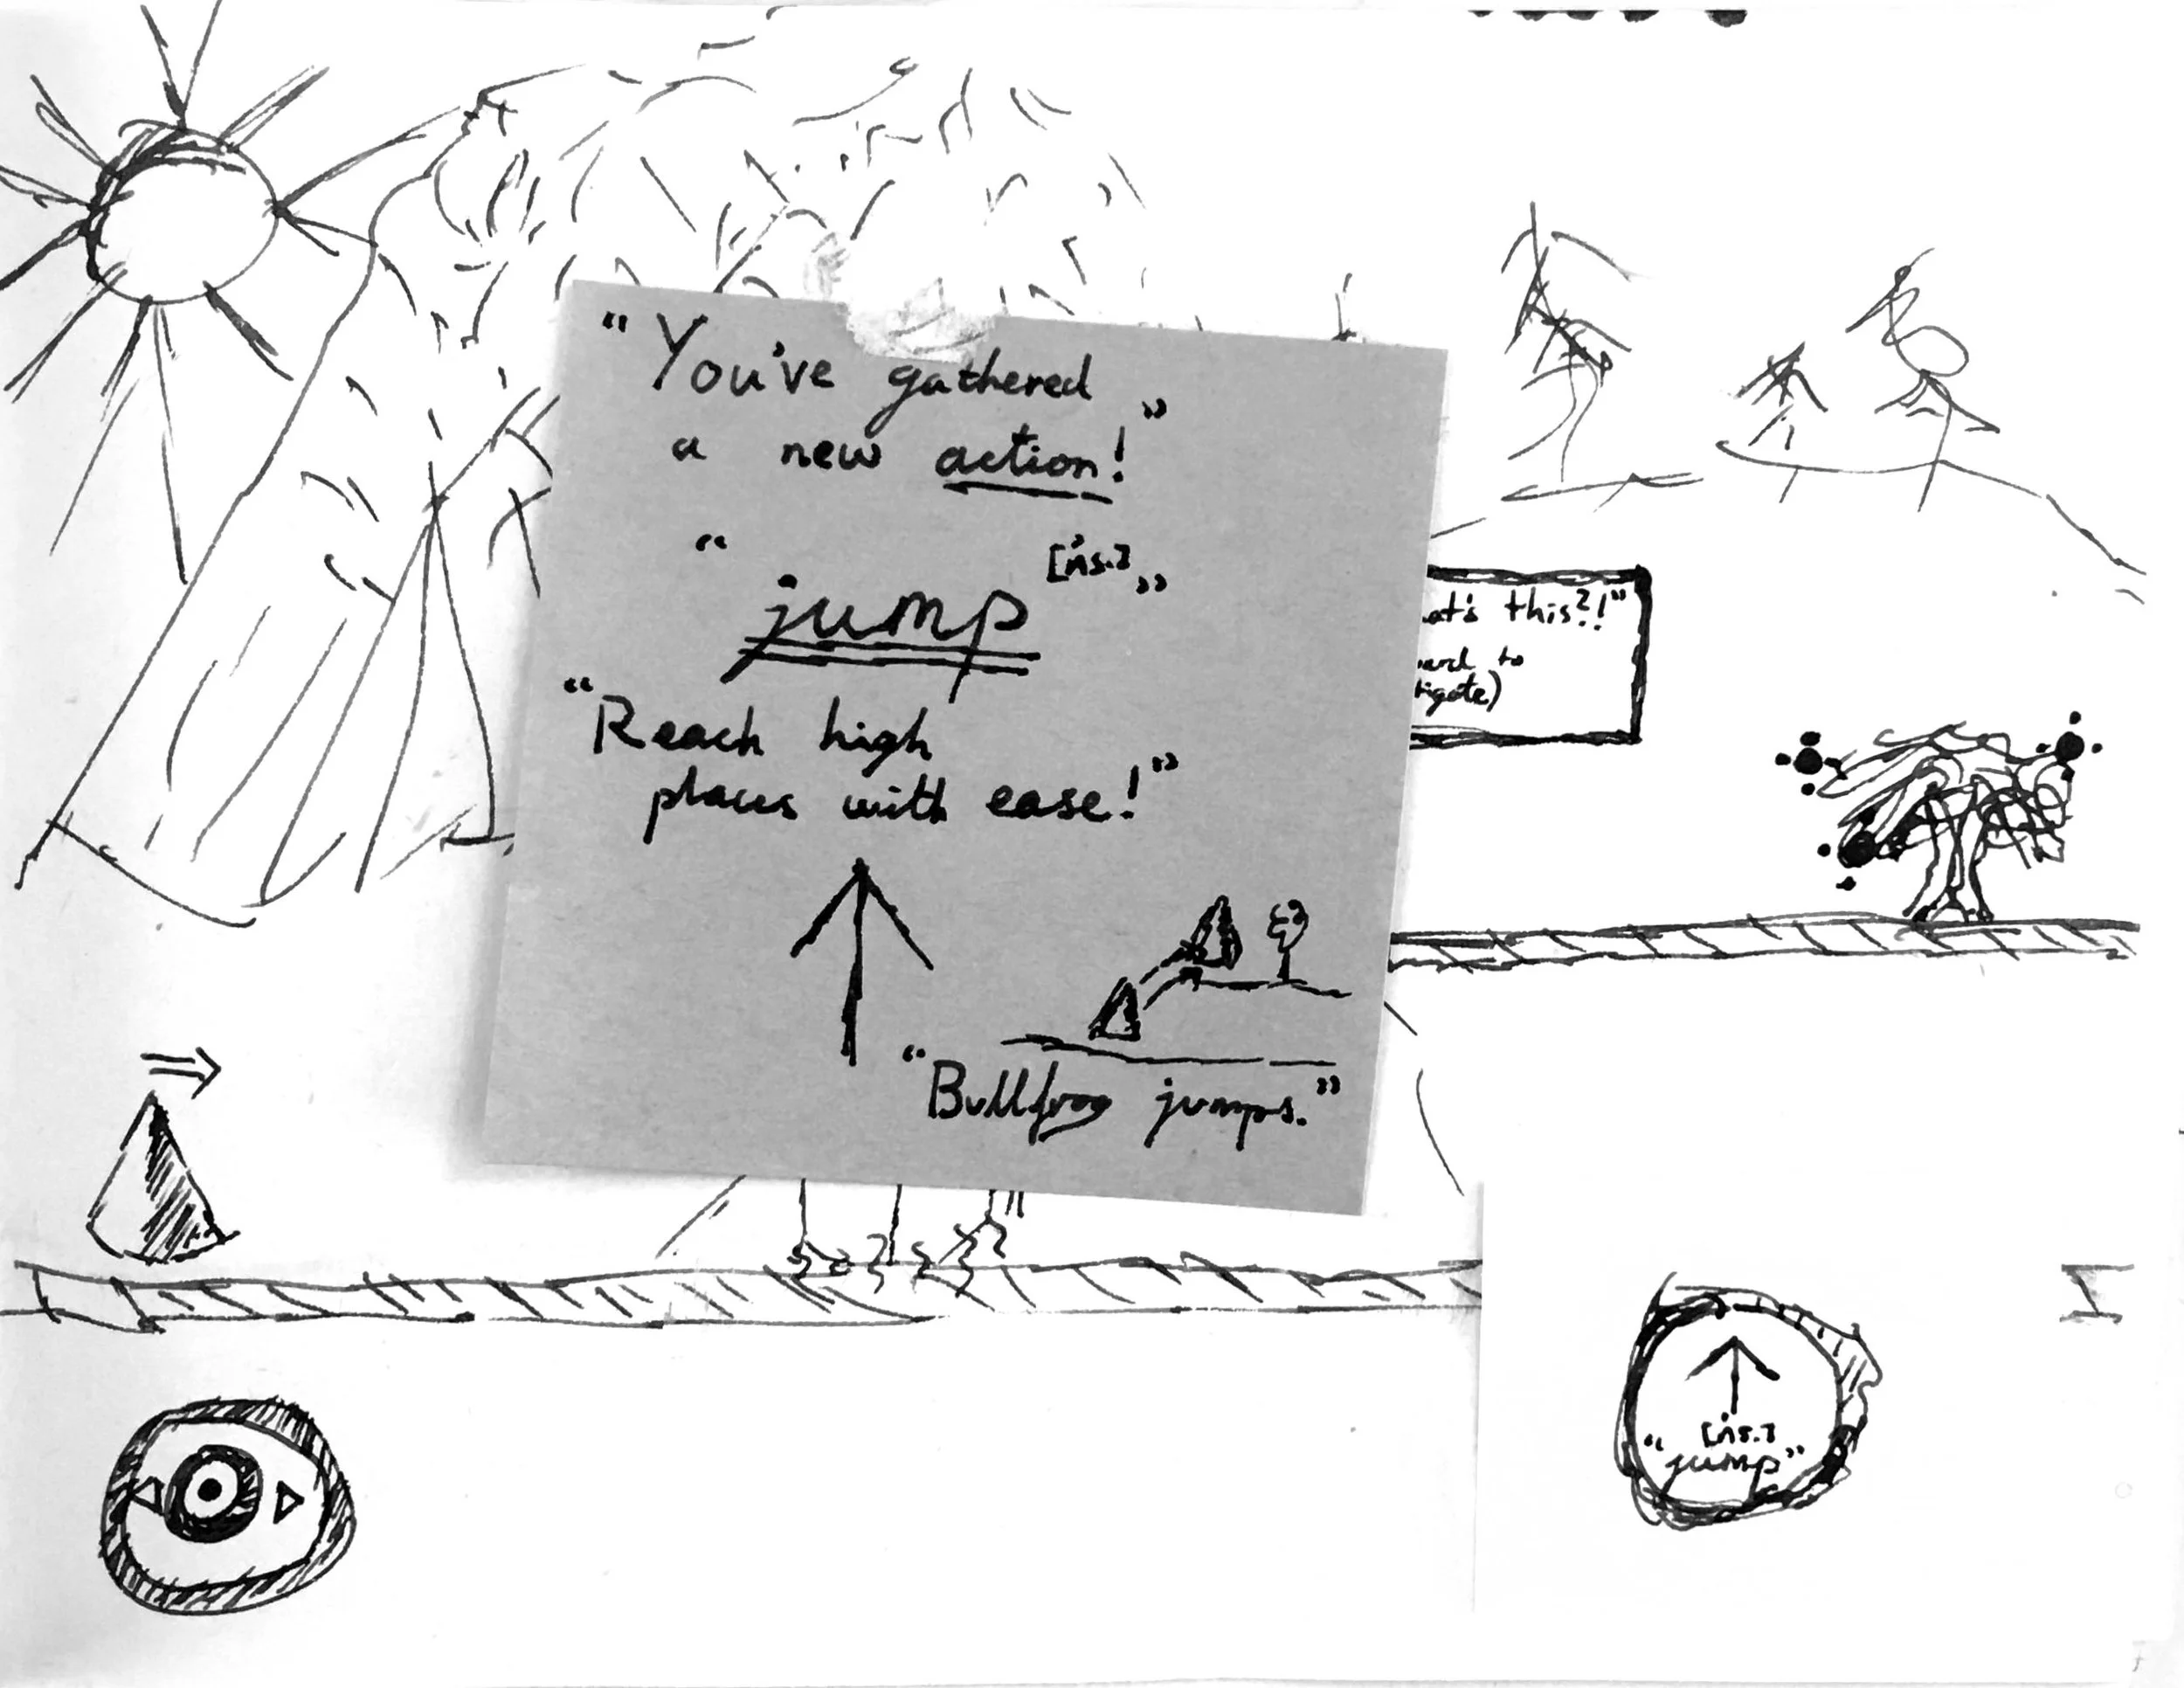 "You've gathered
a new action!"
"jump [ins.]"
"Reach high
places with ease!"
"Bullfrog jumps."
at's this?!"
to
[ins.]
"jump"